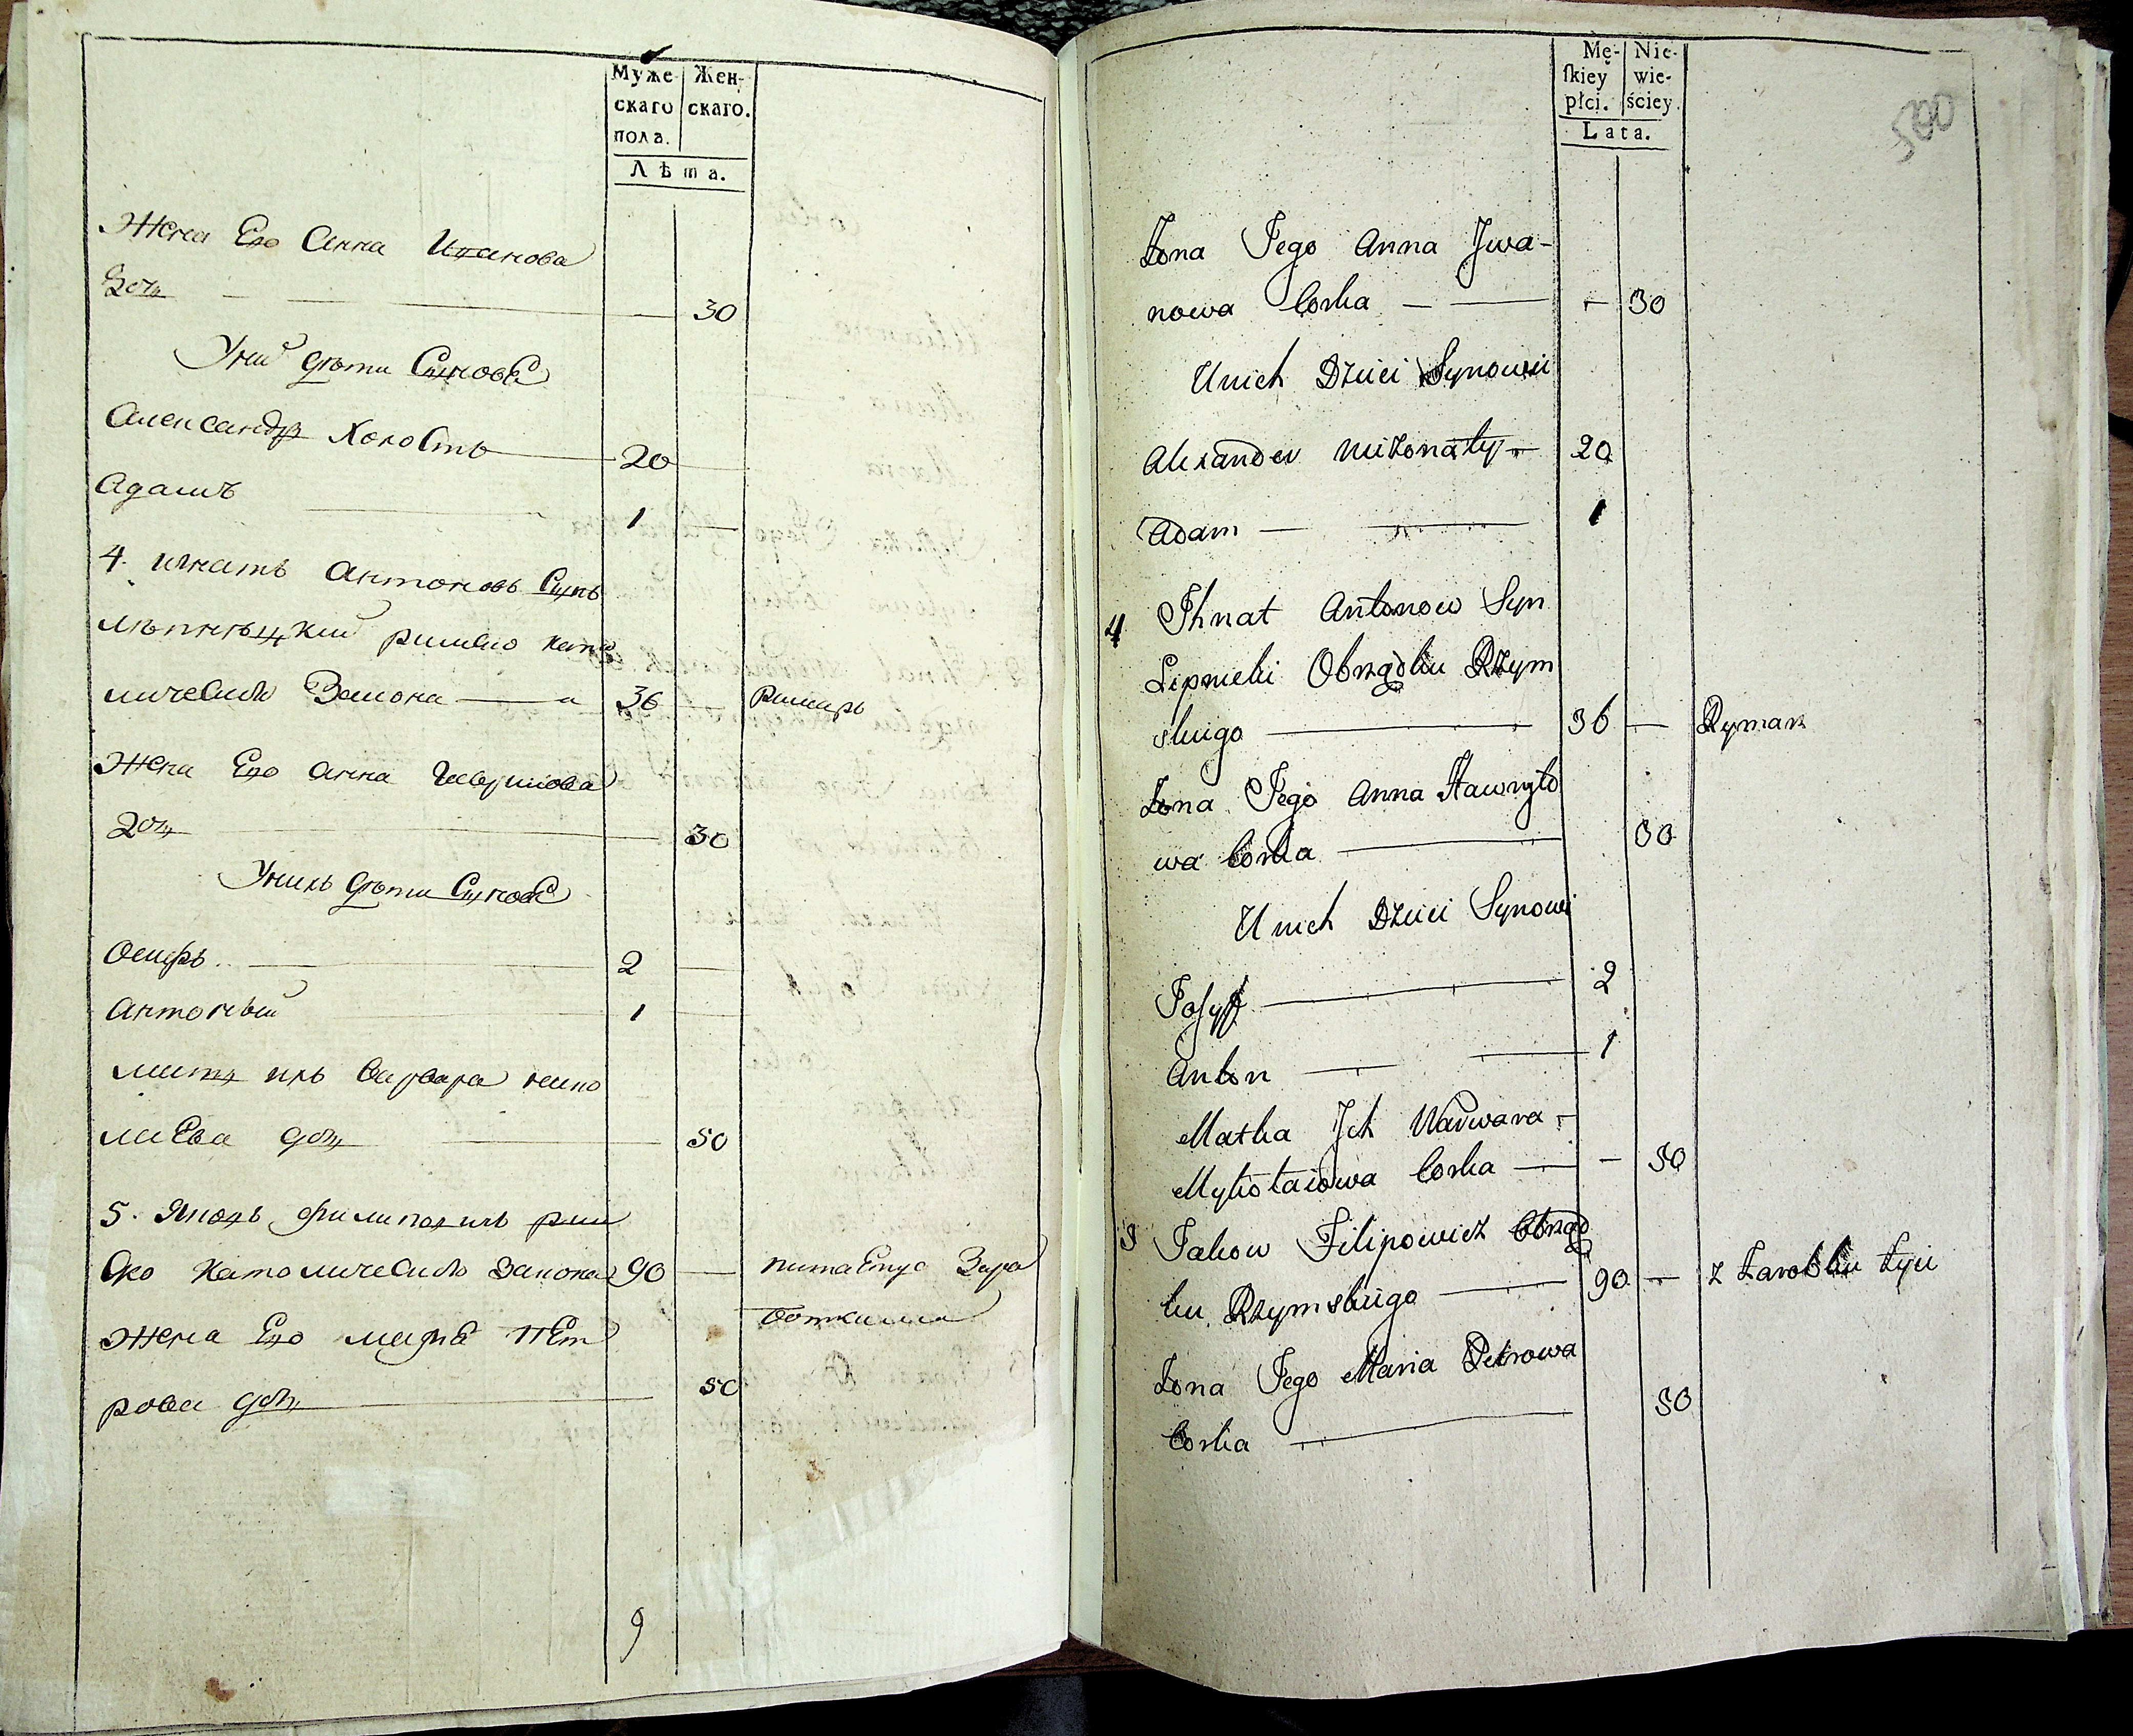 Муже-
скаго
пола.
Жен-
скаго.
Лѣта.
Жена Его Анна Иванова
доч — 30
Уних дѣти Синове
Александр Холость — 20
Адамъ — 1
4. Игнать Антоновъ Сынъ
Лѣпнѣцкий римско като
лическаго Закона — 36 — Римарь
Жена Его Анна Гаврилова
доч — 30
Унихъ дѣти Синове
Осифъ — 2 —
Антоний — 1 —
мать ихъ Варвара нико
лаева доч — 50
5. Яковъ Филиповичъ рим
ско католическаго Закона 90 — питаетца Зара
ботками
Жена Его Мария Пет
рова доч — 50
9
Mę-
ſkiey
płci.
Nie-
wie-
ściey.
Lata.
500
Zona Jego Anna Jwa-
nowa Corka — — 30
Unich Dzieci Synowie
Alexander niezonaty — 20
Adam — 1
4 Ihnat Antonow Syn
Lipnicki Obrządku Rzym
skiego — 36 — Rymarz
Zona Jego Anna Hawryło
wa Corka — 30
Unich Dzieci Synowi
Josyf — 2
Anton — 1
Matka Jch Warwara
Mykołaiowa Corka — — 50
5 Jakow Filipowicz Obrząd
ku Rzymskiego — 90 — z Zarobku żyie
Zona Jego Maria Petrowa
Corka — 50